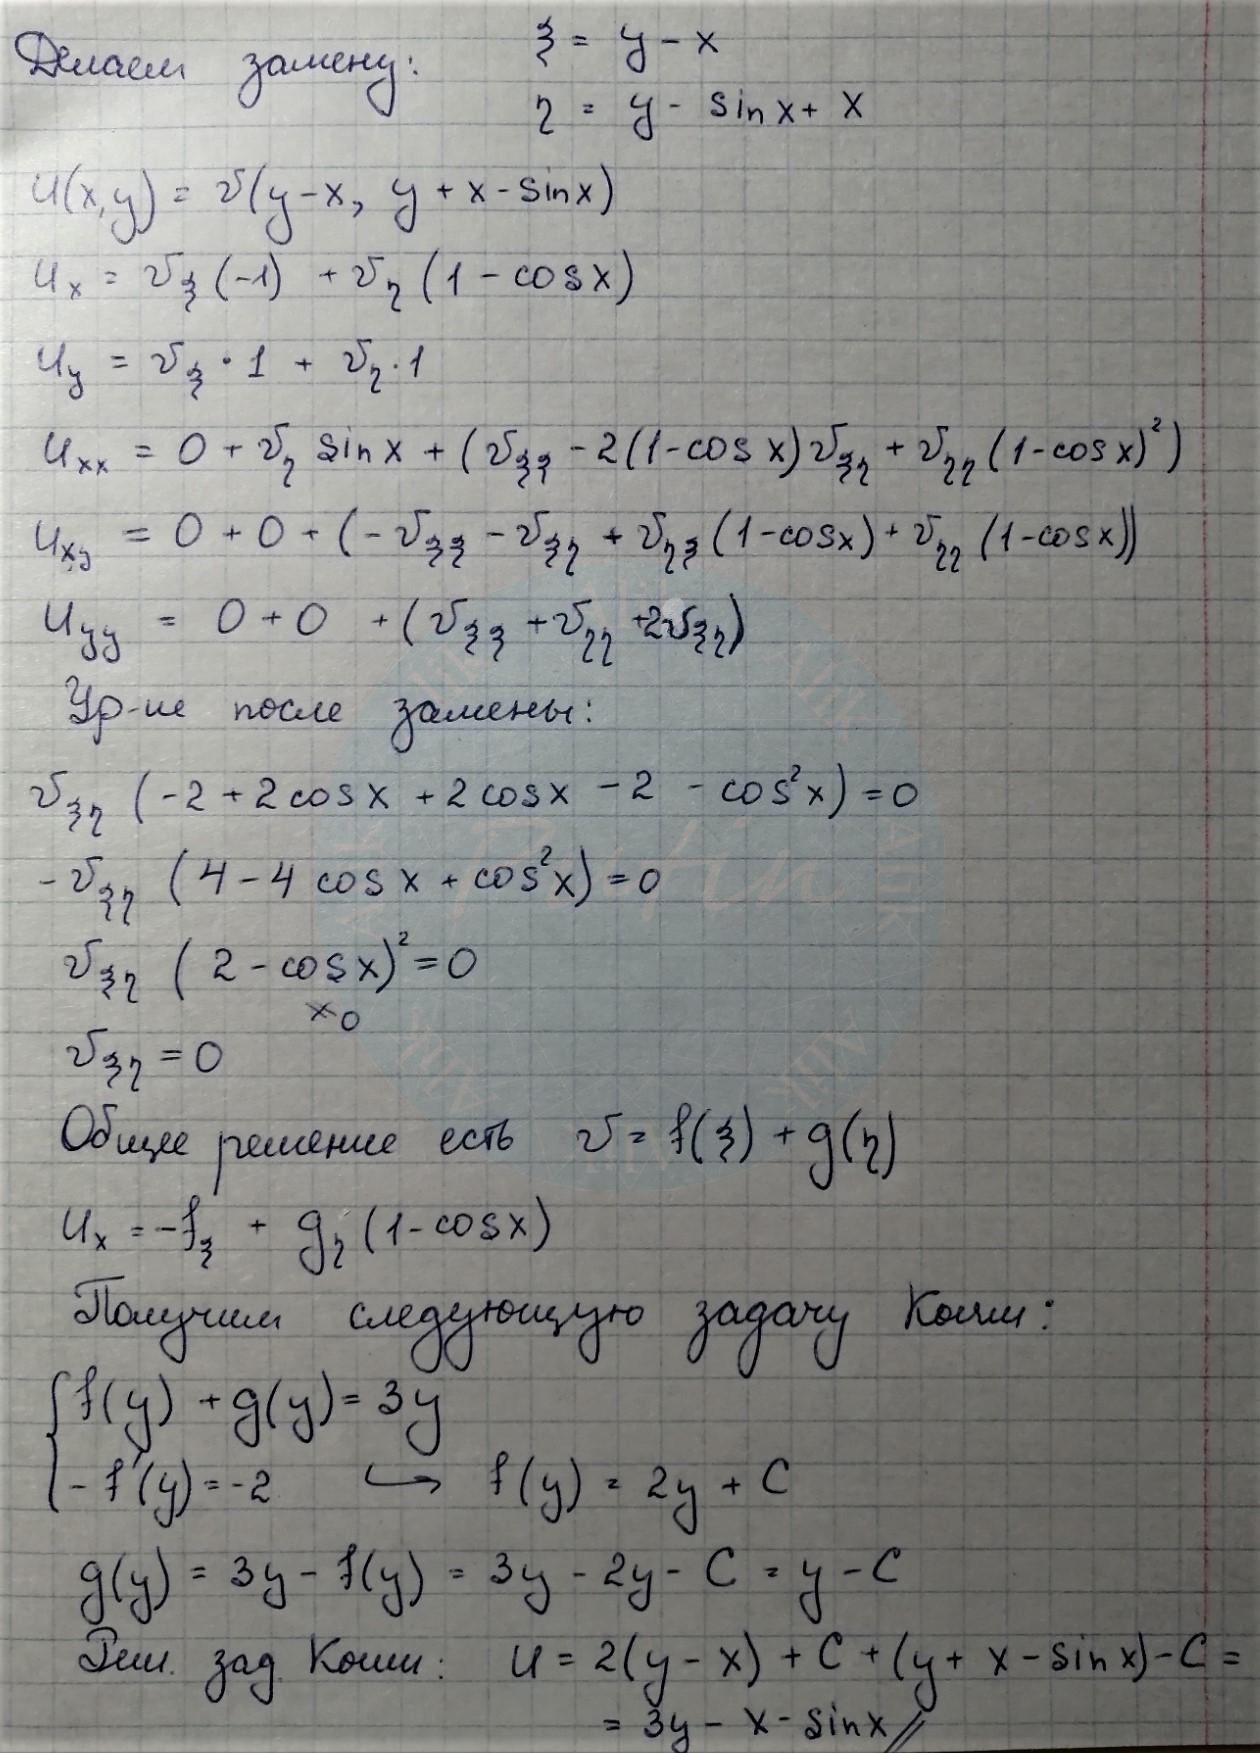 Делаем замену: ξ = y - x
η = y - sin x + x
u(x,y) = v(y-x, y + x - sin x)
u_x = v_ξ (-1) + v_η (1 - cos x)
u_y = v_ξ · 1 + v_η · 1
u_xx = 0 + v_η sin x + (v_ξξ - 2(1-cos x) v_ξη + v_ηη (1-cos x)²)
u_xy = 0 + 0 + (- v_ξξ - v_ξη + v_ηξ (1-cos x) + v_ηη (1-cos x))
u_yy = 0 + 0 + (v_ξξ + v_ηη + 2v_ξη)
Ур-ие после замены:
v_ξη (-2 + 2 cos x + 2 cos x - 2 - cos² x) = 0
- v_ξη (4 - 4 cos x + cos² x) = 0
v_ξη (2 - cos x)² = 0
≠0
v_ξη = 0
Общее решение есть v = f(ξ) + g(η)
u_x = -f_ξ + g_η (1-cos x)
Получим следующую задачу Коши:
{ f(y) + g(y) = 3y
-f'(y) = -2 ↪ f(y) = 2y + C
g(y) = 3y - f(y) = 3y - 2y - C = y - C
Реш. зад. Коши: u = 2(y - x) + C + (y + x - sin x) - C =
= 3y - x - sin x //